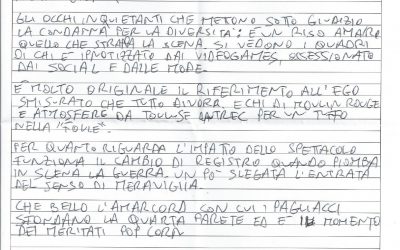 GLI OCCHI INQUIETANTI CHE METTONO SOTTO GIUDIZIO
LA CONDANNA PER LA DIVERSITÀ: È UN RISO AMARO
QUELLO CHE STRAPPA LA SCENA. SI VEDONO I QUADRI
DI CHI È IPNOTIZZATO DAI VIDEOGAMES, OSSESSIONATO
DAI SOCIAL E DALLE MODE.
È MOLTO ORIGINALE IL RIFERIMENTO ALL'EGO
SMISURATO CHE TUTTO DIVORA. ECHI DI MOULIN ROUGE
E ATMOSFERE DA TOULUSE LAUTREC PER UN TUFFO
NELLA "FOLIE".
PER QUANTO RIGUARDA L'IMPATTO DELLO SPETTACOLO
FUNZIONA IL CAMBIO DI REGISTRO QUANDO PIOMBA
IN SCENA LA GUERRA. UN PO' SLEGATA L'ENTRATA
DEL SENSO DI MERAVIGLIA.
CHE BELLO L'AMARCORD CON CUI I PAGLIACCI
SFONDANO LA QUARTA PARETE ED È IL MOMENTO
DEI MERITATI POP CORN